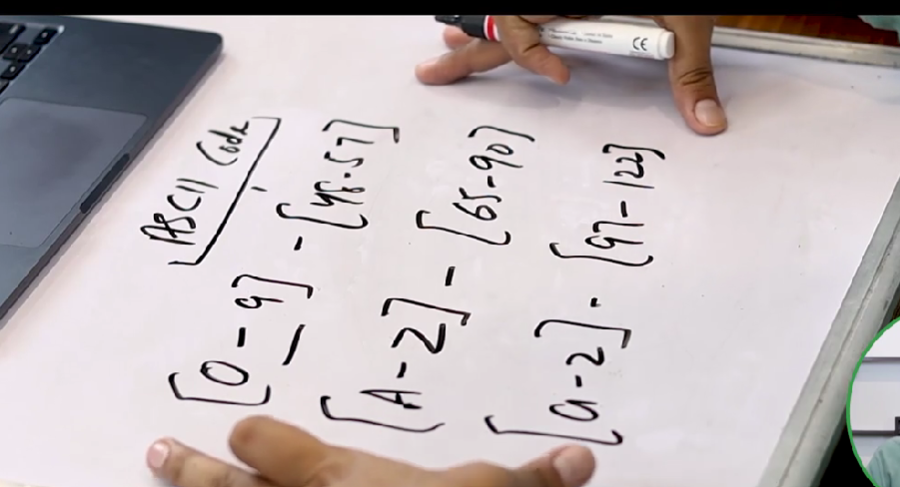 ASCII Code
[0-9] - [48-57]
[A-Z] - [65-90]
[a-z] - [97-122]
CE